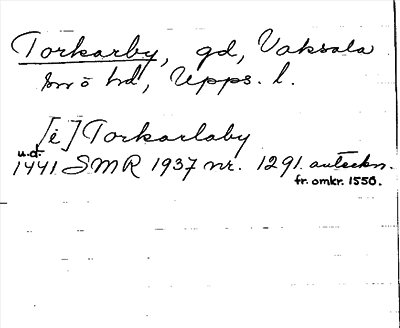 Torkarby, gd, Vaksala
sn o hd, Upps. l.
[i] Torkarlaby
u.d.
1441 SMR 1937 nr. 1291. anteckn.
fr. omkr. 1550.